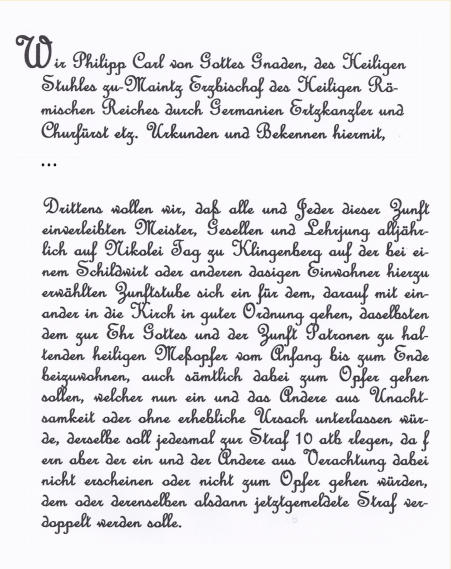 Wir Philipp Carl von Gottes Gnaden, des Heiligen
Stuhles zu-Maintz Erzbischof des Heiligen Rö-
mischen Reiches durch Germanien Ertzkanzler und
Churfürst etz. Urkunden und Bekennen hiermit,
...
Drittens wollen wir, daß alle und Jeder dieser Zunft
einverleibten Meister, Gesellen und Lehrjung alljähr-
lich auf Nikolei Tag zu Klingenberg auf der bei ei-
nem Schildwirt oder anderen dasigen Einwohner hierzu
erwählten Zunftstube sich ein für dem, darauf mit ein-
ander in die Kirch in guter Ordnung gehen, daselbsten
dem zur Ehr Gottes und der Zunft Patronen zu hal-
tenden heiligen Meßopfer vom Anfang bis zum Ende
beizuwohnen, auch sämtlich dabei zum Opfer gehen
sollen, welcher nun ein und das Andere aus Unacht-
samkeit oder ohne erhebliche Ursach unterlassen wür-
de, derselbe soll jedesmal zur Straf 10 atb rlegen, da f
ern aber der ein und der Andere aus Verachtung dabei
nicht erscheinen oder nicht zum Opfer gehen würden,
dem oder derenselben alsdann jetztgemeldete Straf ver-
doppelt werden solle.